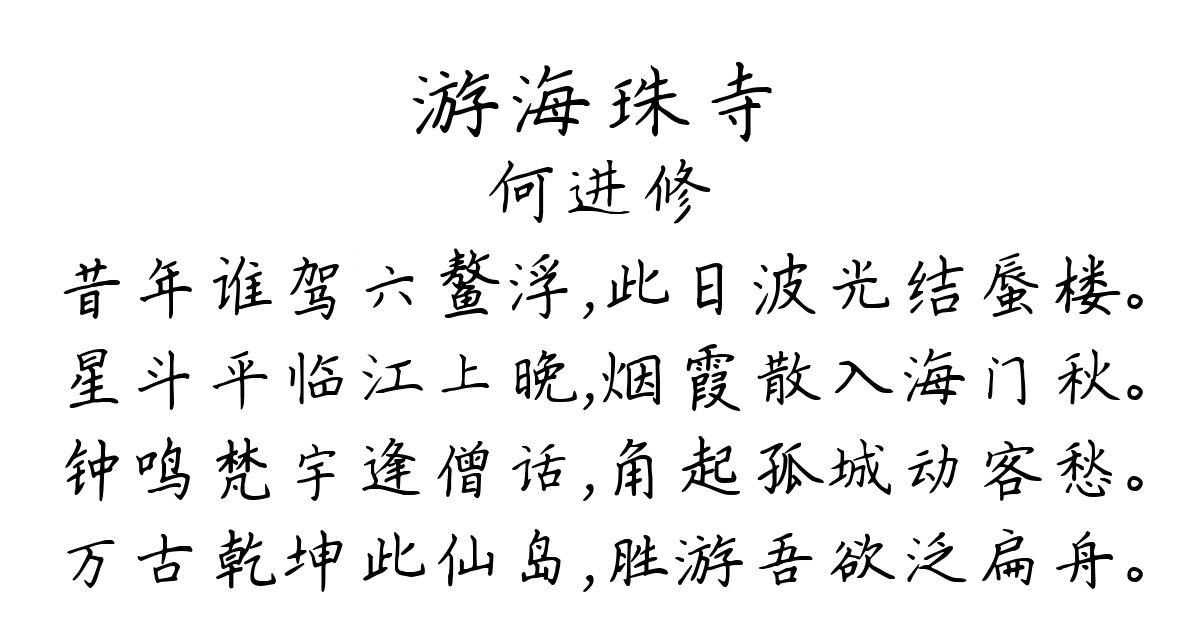 游海珠寺
何进修
昔年谁驾六鳌浮,此日波光结蜃楼。
星斗平临江上晚,烟霞散入海门秋。
钟鸣梵宇逢僧话,角起孤城动客愁。
万古乾坤此仙岛,胜游吾欲泛扁舟。